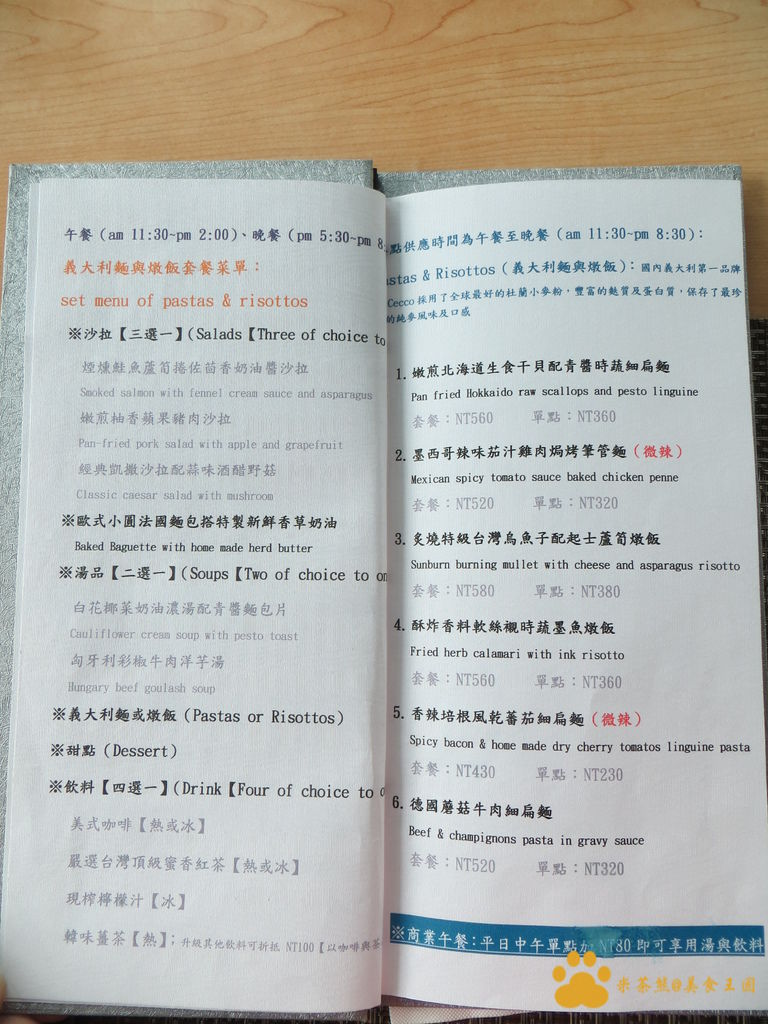 午餐（am 11:30~pm 2:00）、晚餐（pm 5:30~pm 8:
義大利麵與燉飯套餐菜單：
set menu of pastas & risottos
※沙拉【三選一】(Salads【Three of choice to
煙燻鮭魚蘆筍捲佐茴香奶油醬沙拉
Smoked salmon with fennel cream sauce and asparagus
嫩煎柚香蘋果豬肉沙拉
Pan-fried pork salad with apple and grapefruit
經典凱撒沙拉配蒜味酒醋野菇
Classic caesar salad with mushroom
※歐式小圓法國麵包搭特製新鮮香草奶油
Baked Baguette with home made herd butter
※湯品【二選一】(Soups【Two of choice to on
白花椰菜奶油濃湯配青醬麵包片
Cauliflower cream soup with pesto toast
匈牙利彩椒牛肉洋芋湯
Hungary beef goulash soup
※義大利麵或燉飯（Pastas or Risottos）
※甜點（Dessert）
※飲料【四選一】(Drink【Four of choice to
美式咖啡【熱或冰】
嚴選台灣頂級蜜香紅茶【熱或冰】
現榨檸檬汁【冰】
韓味薑茶【熱】；升級其他飲料可折抵 NT100【以咖啡與茶
點供應時間為午餐至晚餐（am 11:30~pm 8:30）：
astas & Risottos（義大利麵與燉飯）：國內義大利第一品牌
Cecco 採用了全球最好的杜蘭小麥粉，豐富的麩質及蛋白質，保存了最珍
的純麥風味及口感
1. 嫩煎北海道生食干貝配青醬時蔬細扁麵
Pan fried Hokkaido raw scallops and pesto linguine
套餐：NT560 單點：NT360
2. 墨西哥辣味茄汁雞肉焗烤筆管麵（微辣）
Mexican spicy tomato sauce baked chicken penne
套餐：NT520 單點：NT320
3. 炙燒特級台灣烏魚子配起士蘆筍燉飯
Sunburn burning mullet with cheese and asparagus risotto
套餐：NT580 單點：NT380
4. 酥炸香料軟絲襯時蔬墨魚燉飯
Fried herb calamari with ink risotto
套餐：NT560 單點：NT360
5. 香辣培根風乾蕃茄細扁麵（微辣）
Spicy bacon & home made dry cherry tomatos linguine pasta
套餐：NT430 單點：NT230
6. 德國蘑菇牛肉細扁麵
Beef & champignons pasta in gravy sauce
套餐：NT520 單點：NT320
※商業午餐：平日中午單點加 NT80 即可享用湯與飲料
米茶熊@美食王國